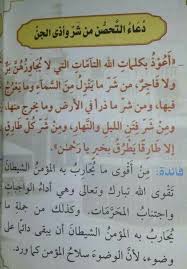 دعاء التحصن من شر وأذى الجن
« أعوذ بكلمات الله التامات التي لا يجاوزهن بر
ولا فاجر، من شر ما ينزل من السماء وما يعرج
فيها، ومن شر ما ذرأ في الأرض وما يخرج منها،
ومن شر فتن الليل والنهار، ومن شر كل طارق
إلا طارقا يطرق بخير يا رحمن».
فائدة: من أقوى ما يحارب به المؤمن الشيطان
تقوى الله تبارك وتعالى وهي أداء الواجبات
واجتناب المحرمات. وكذلك من جملة ما
يحارب به المؤمن الشيطان أن يبقى دائما على
وضوء، لأن الوضوء سلاح المؤمن كما ورد.